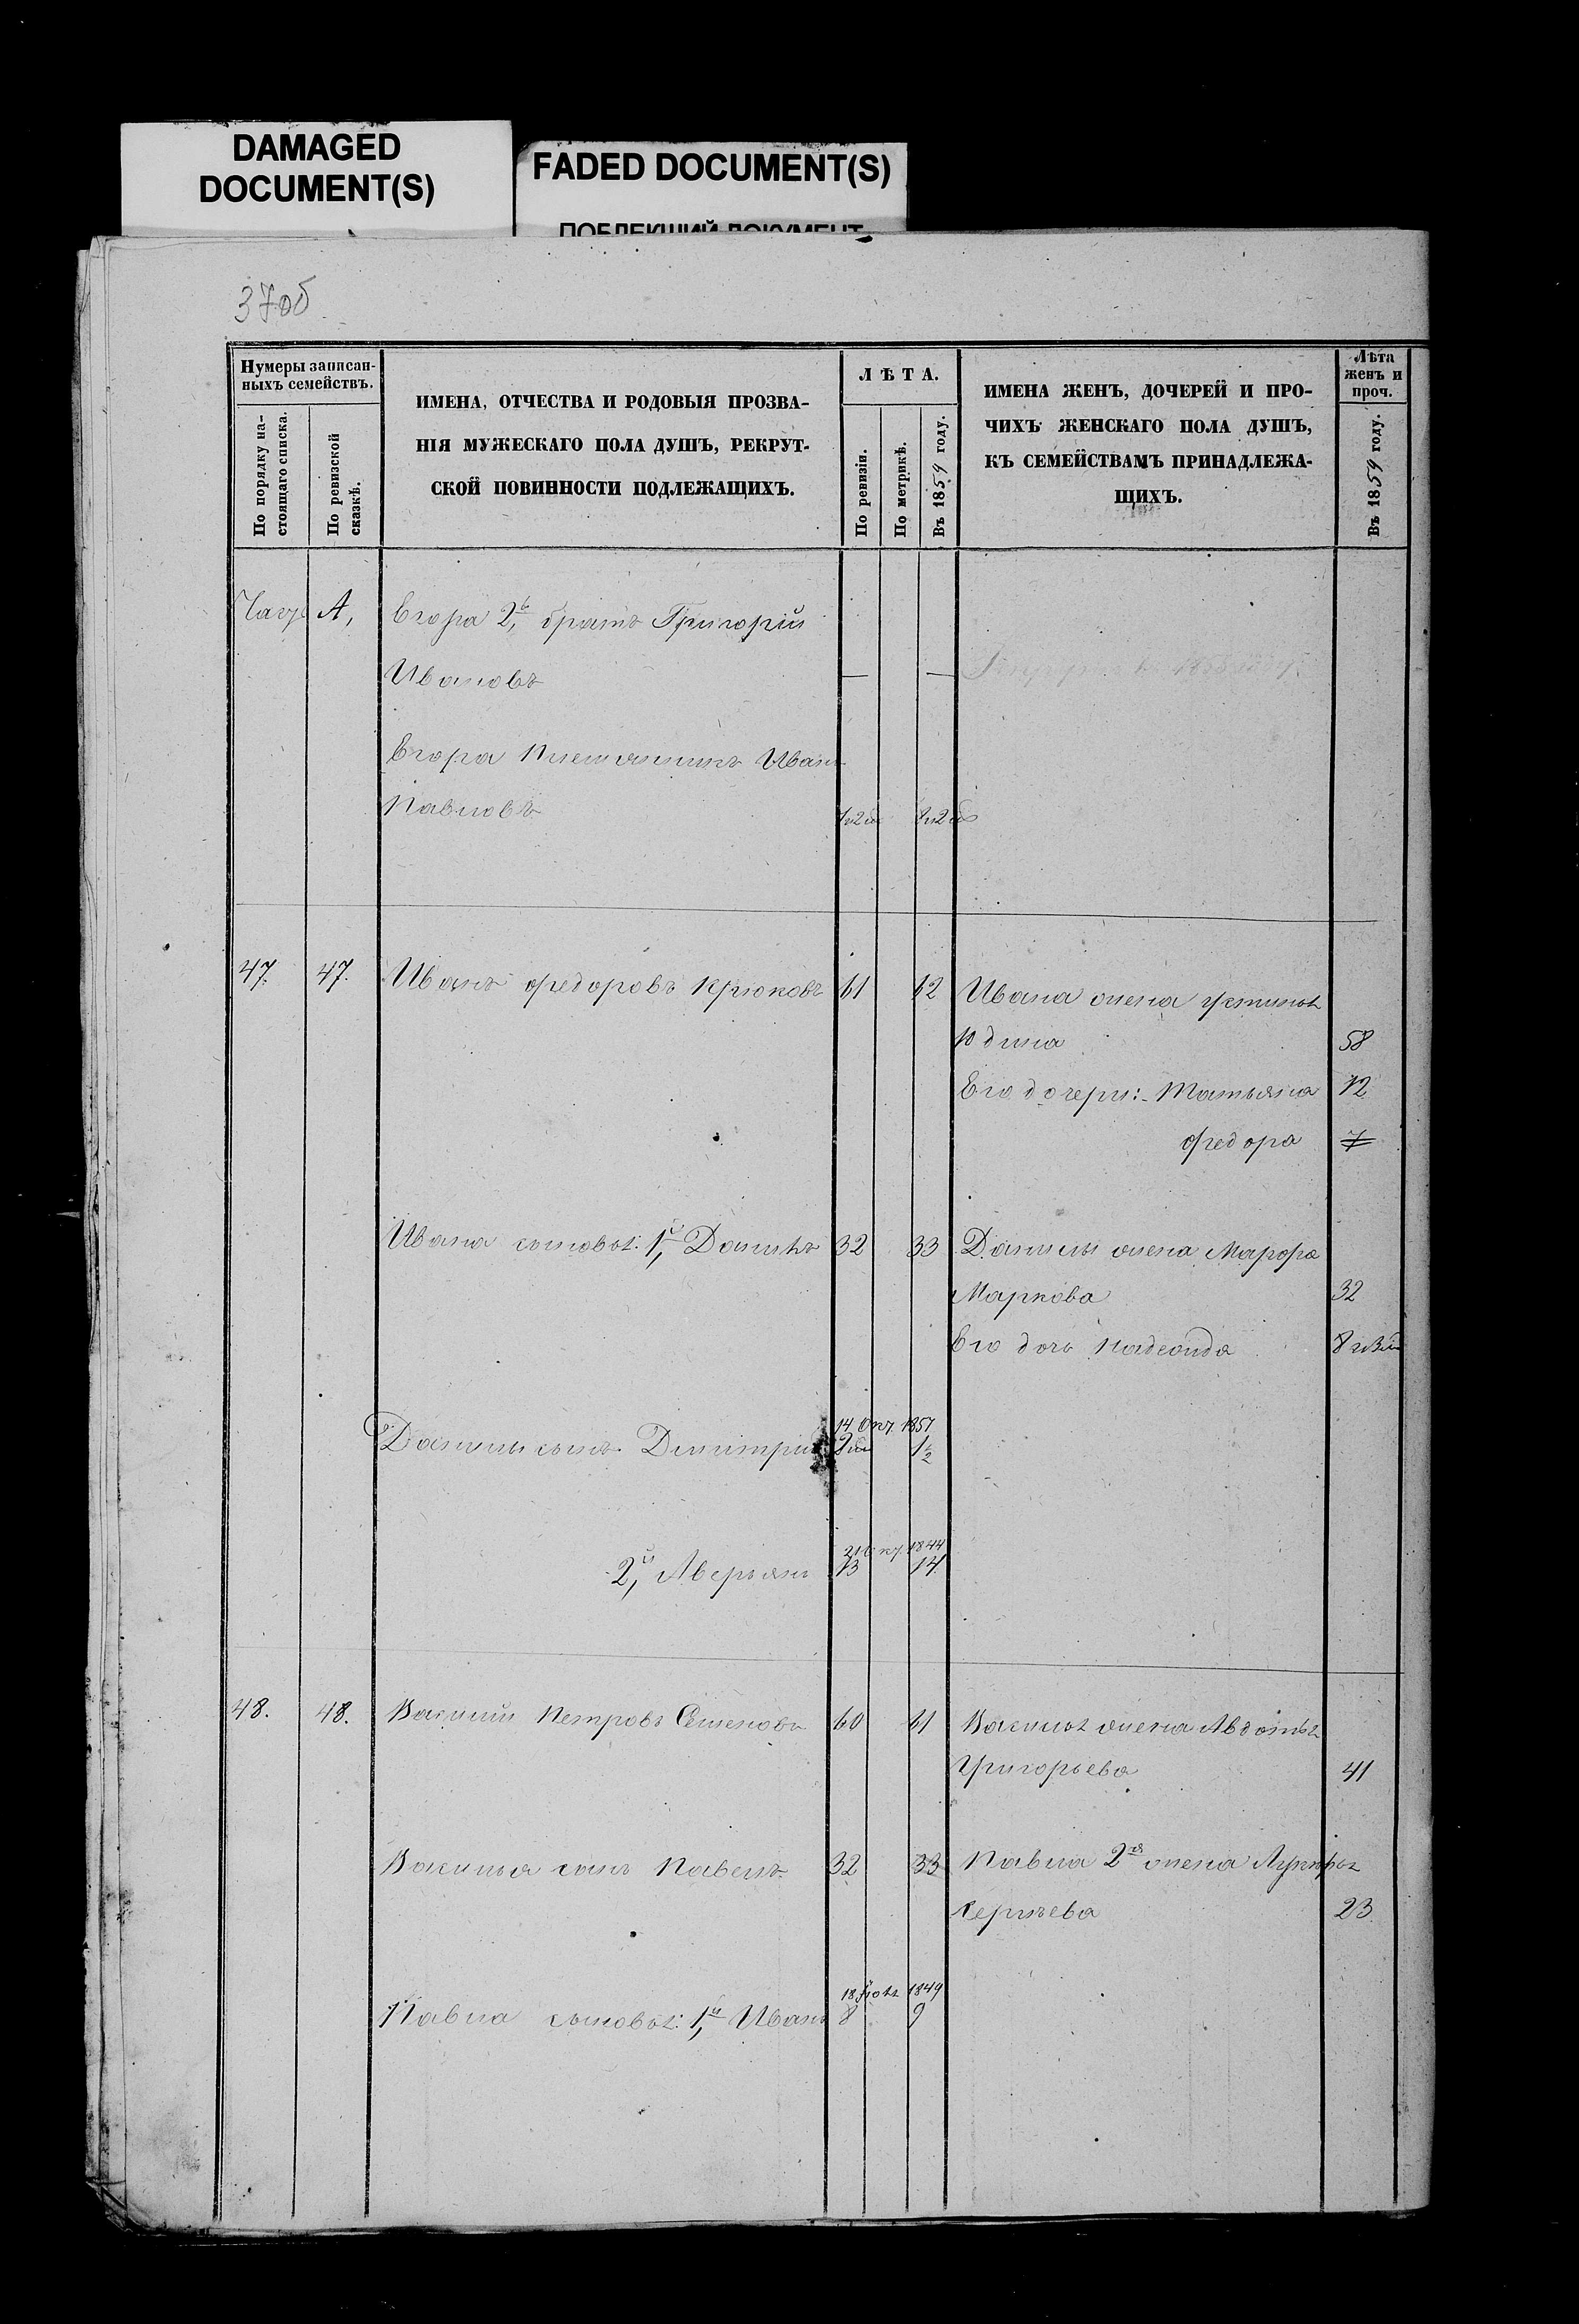 DAMAGED
DOCUMENT(S)
FADED DOCUMENT(S)
ПОБЛЕКШИЙ ДОКУМЕНТ
37об
Нумеры записан-
ныхъ семействъ.
По порядку на-
стоящаго списка.
По ревизской
сказкѣ.
ИМЕНА, ОТЧЕСТВА И РОДОВЫЯ ПРОЗВА-
НІЯ МУЖЕСКАГО ПОЛА ДУШЪ, РЕКРУТ-
СКОЙ ПОВИННОСТИ ПОДЛЕЖАЩИХЪ.
ЛѢТА.
По ревизіи.
По метрикѣ.
Въ 1859 году.
ИМЕНА ЖЕНЪ, ДОЧЕРЕЙ И ПРО-
ЧИХЪ ЖЕНСКАГО ПОЛА ДУШЪ,
КЪ СЕМЕЙСТВАМЪ ПРИНАДЛЕЖА-
ЩИХЪ.
Лѣта
женъ и
проч.
Въ 1859 году.
А, Егора 2, братъ Григорій
Ивановъ — —
Егора племянникъ Иванъ
Павловъ
47. 47. Иванъ Федоровъ Крюковъ 61 62 Ивана жена Устинья
58
Его дочери: Татьяна 12
Федора 7
Ивана сыновья: 1й, Данилъ 32 33 Данилы жена Марфа
Маркова 32
Его дочь Надежда
14 Окт. 1857
Данилы сынъ Димитрій 1/2
21 Окт. 1844
2й, Аверьянъ 13 14
48. 48. Василій Петровъ Семеновъ 60 61 Василья жена Авдотья
Григорьева 41
Василья сынъ Павелъ 32 33 Павла 2я жена Лукерья
Сергѣева 23
18 1849
Павла сыновья: 1й, Иванъ 8 9